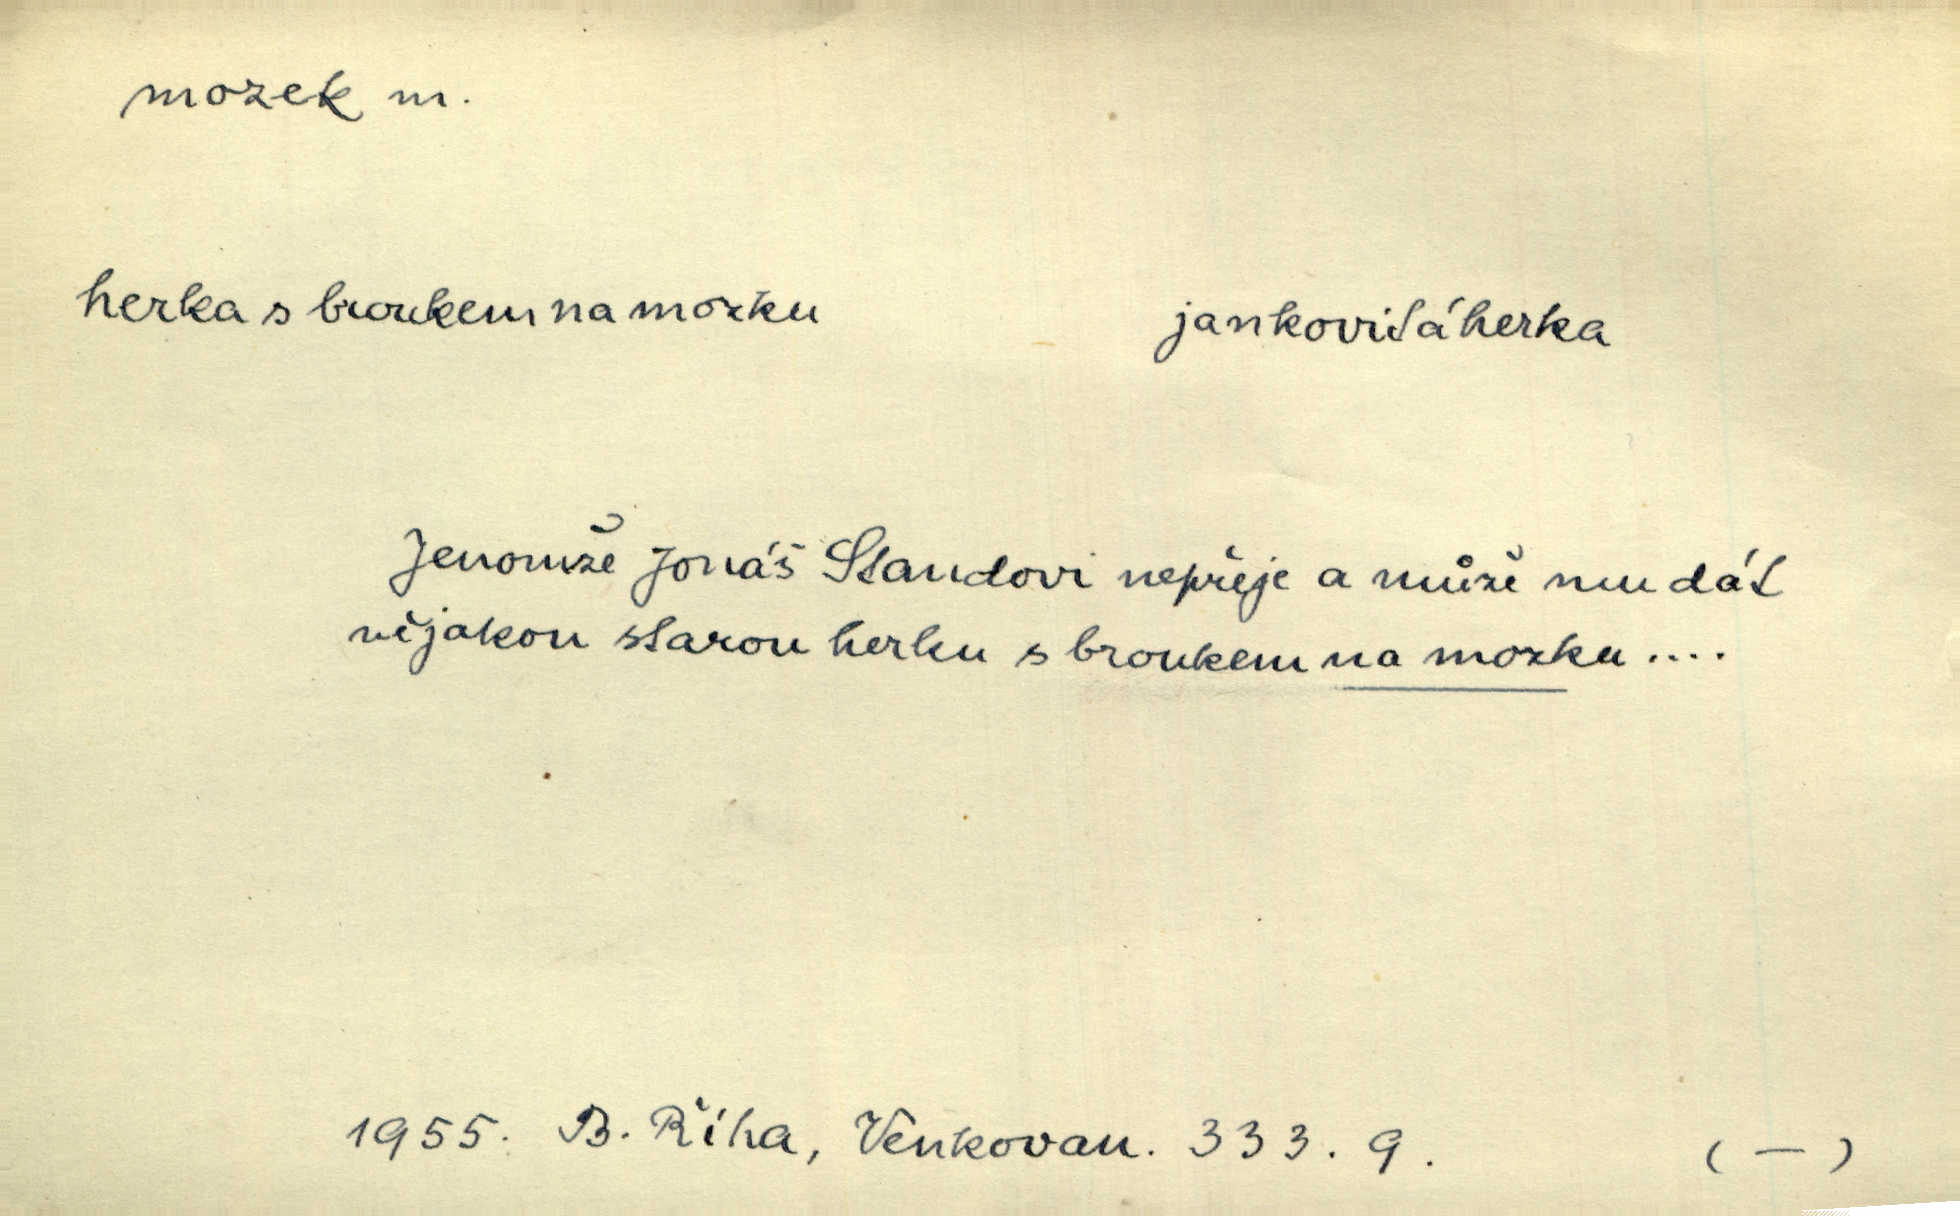 mozek m.
herka s broukem na mozku
jankovitá herka
Jenomže Jonáš Standovi nepřeje a může mu dát
nějakou starou herku s broukem na mozku ....
1955. B. Říha, Venkovan. 333. 9. ( — )